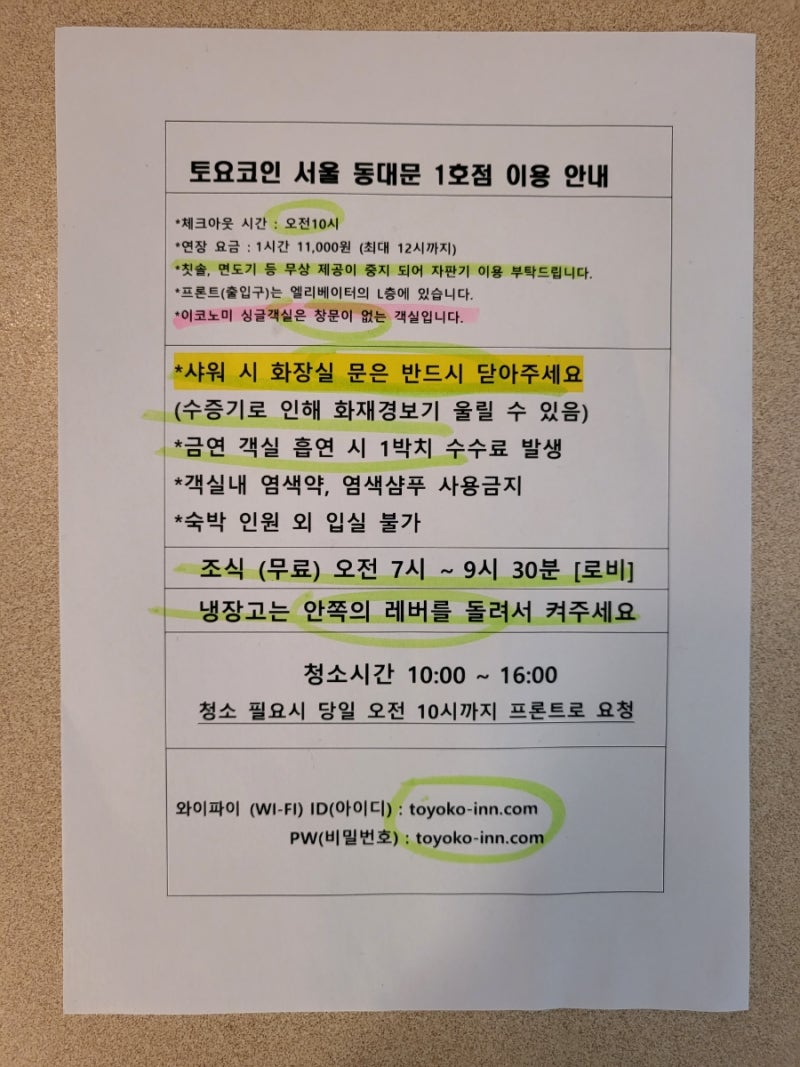 토요코인 서울 동대문 1호점 이용 안내
*체크아웃 시간 : 오전10시
*연장 요금 : 1시간 11,000원 (최대 12시까지)
*칫솔, 면도기 등 무상 제공이 중지 되어 자판기 이용 부탁드립니다.
*프론트(출입구)는 엘리베이터의 L층에 있습니다.
*이코노미 싱글객실은 창문이 없는 객실입니다.
*샤워 시 화장실 문은 반드시 닫아주세요
(수증기로 인해 화재경보기 울릴 수 있음)
*금연 객실 흡연 시 1박치 수수료 발생
*객실내 염색약, 염색샴푸 사용금지
*숙박 인원 외 입실 불가
조식 (무료) 오전 7시 ~ 9시 30분 [로비]
냉장고는 안쪽의 레버를 돌려서 켜주세요
청소시간 10:00 ~ 16:00
청소 필요시 당일 오전 10시까지 프론트로 요청
와이파이 (WI-FI) ID(아이디) : toyoko-inn.com
PW(비밀번호) : toyoko-inn.com